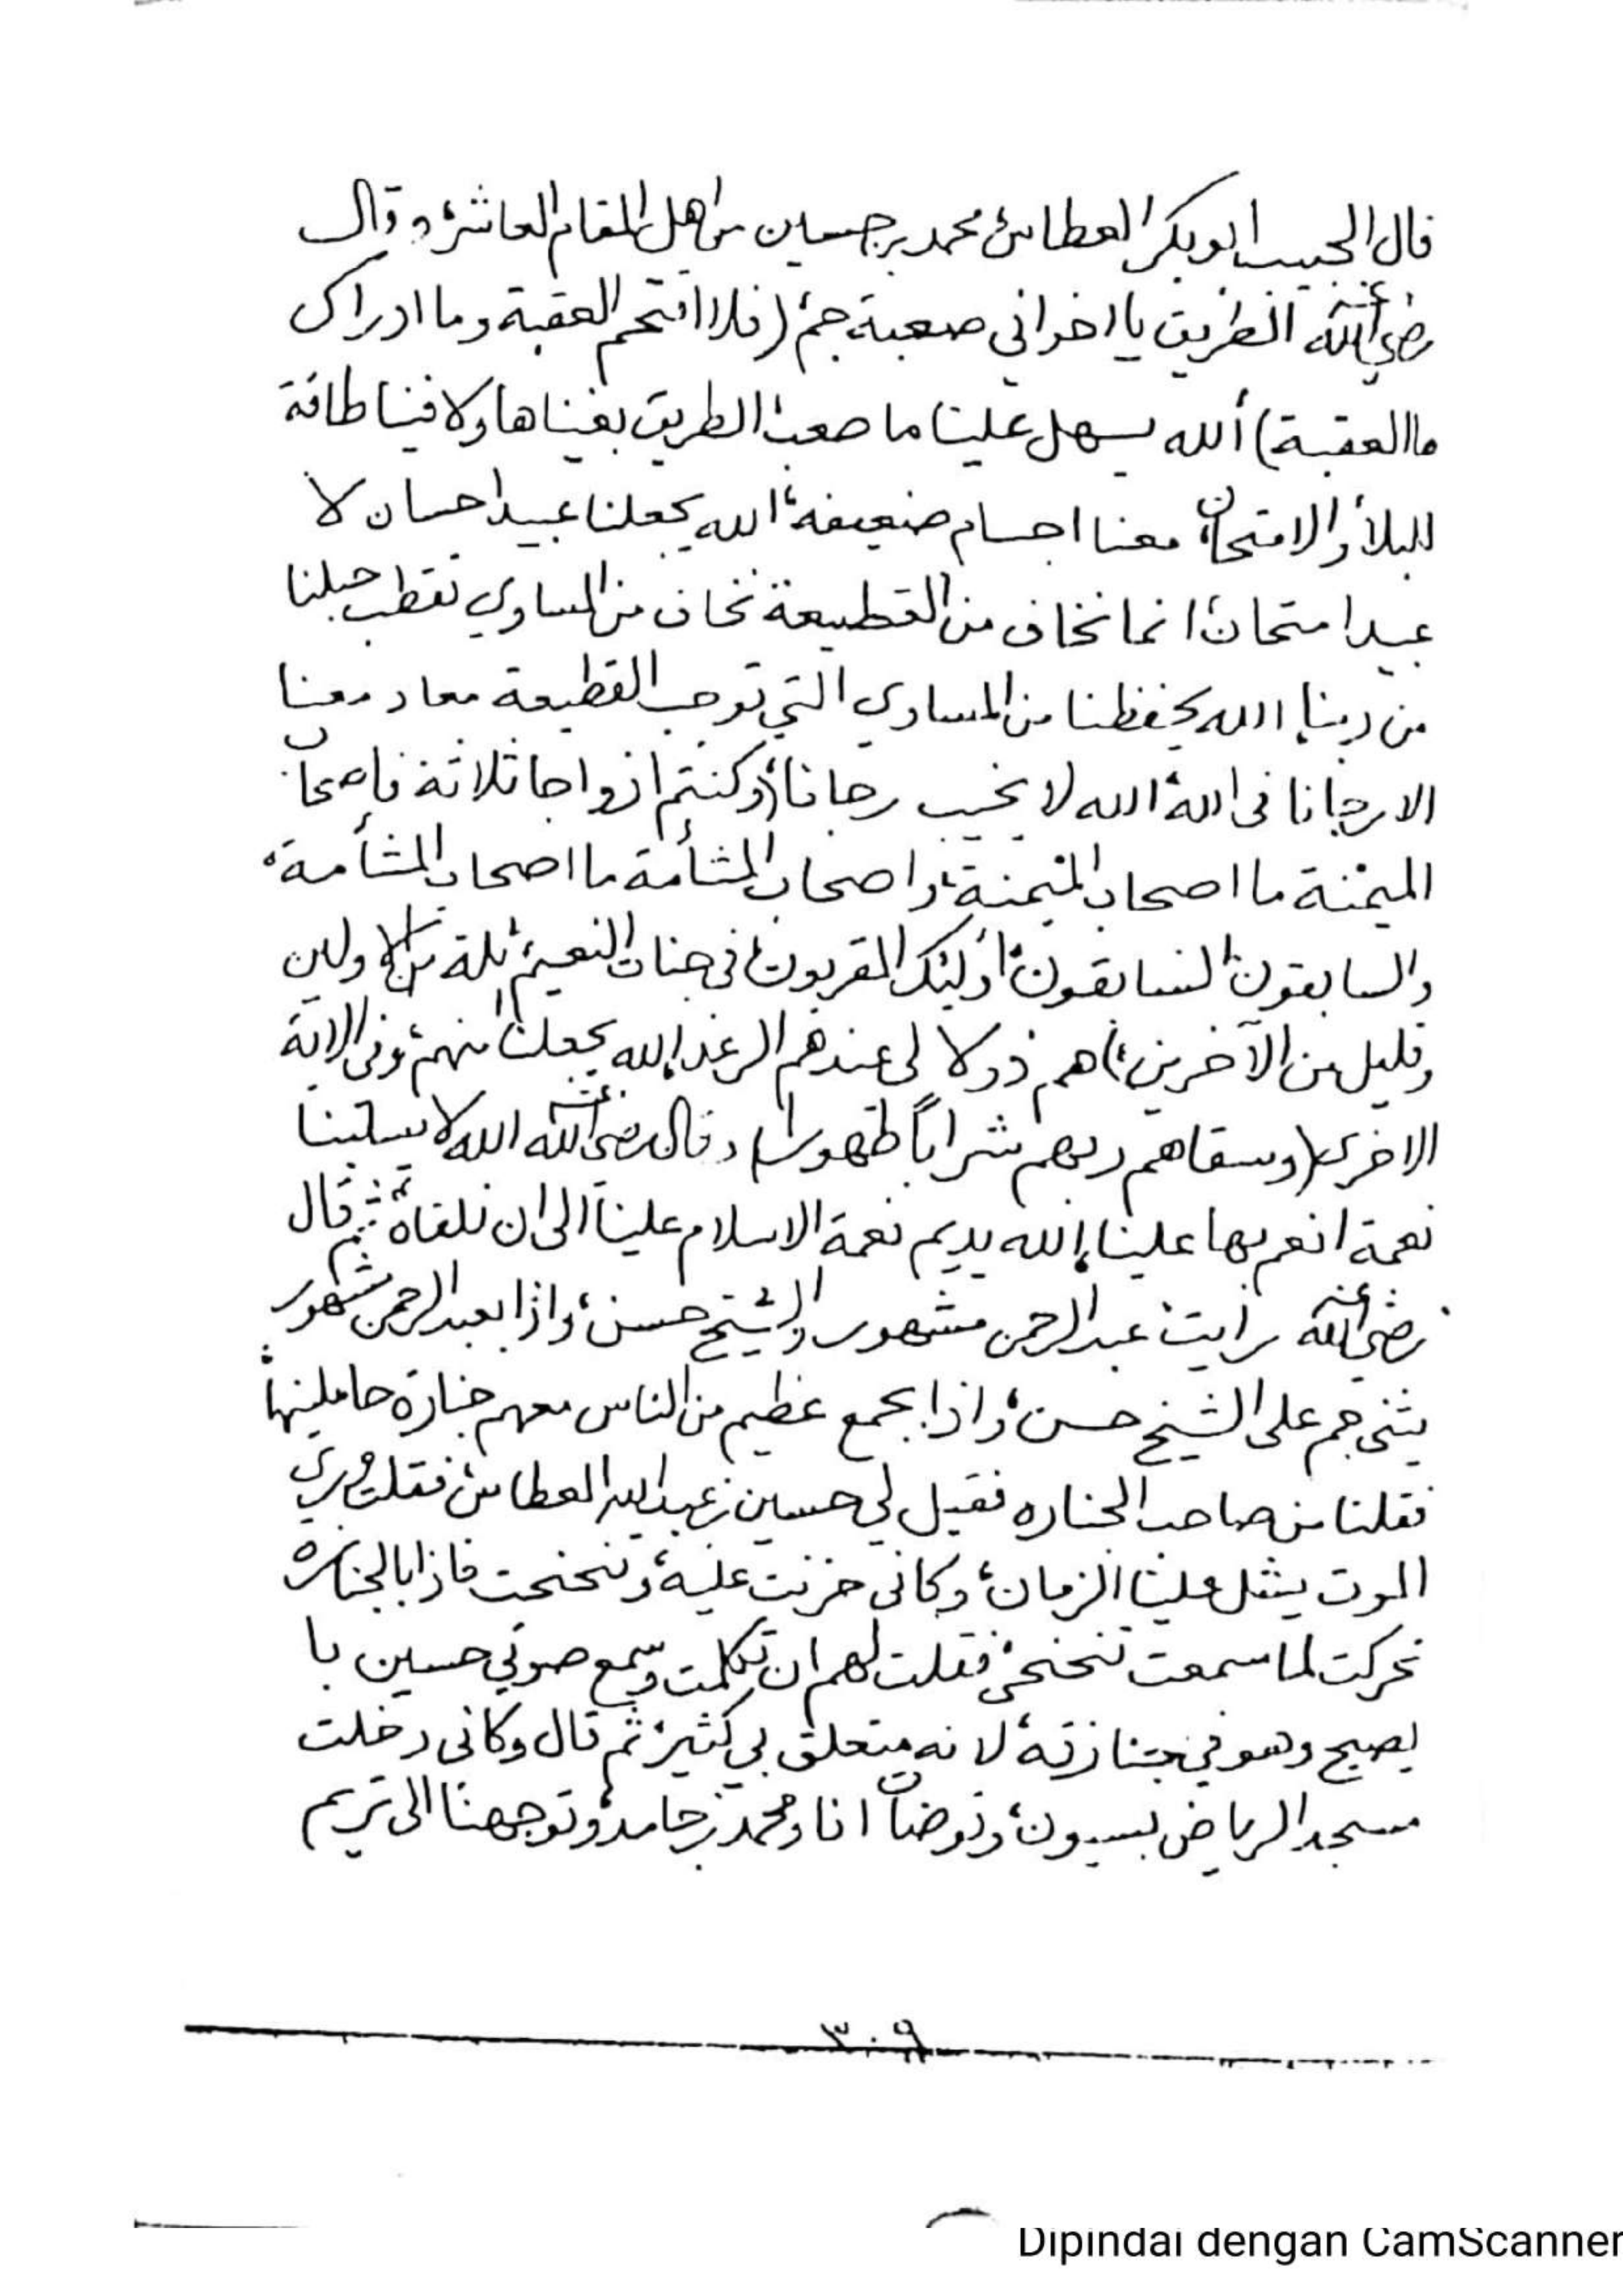 قال الحبيب ابوبكر العطاس محمد بن حسين من اهل المقام العاشر، وقال
رضي الله عنه الطريق يا اخواني صعبة جم، (فلا اقتحم العقبة وما ادراك
ما العقبة) الله يسهل علينا ما صعب، الطريق بغيناها ولا فينا طاقة
للبلاء والامتحان، معنا اجسام ضعيفة، الله يجعلنا عبيد احسان لا
عبيد امتحان، انما نخاف من القطيعة نخاف من المساوي تقطب حبلنا
من ربنا، الله يحفظنا من المساوي التي توجب القطيعة معاد معنا
الا رجانا في الله، الله لا يخيب رجانا، (وكنتم ازواجا ثلاثة فاصحاب
الميمنة ما اصحاب الميمنة، واصحاب المشأمة ما اصحاب المشأمة،
والسابقون السابقون، أولئك المقربون، في جنات النعيم، ثلة من الاولين
وقليل من الآخرين،) هم ذولا لي عندهم الرغد، الله يجعلنا منهم، وفي الاية
الاخرى (وسقاهم ربهم شراباً طهورا) وقال رضي الله عنه الله لا يسلبنا
نعمة انعم بها علينا، الله يديم نعمة الاسلام علينا الى ان نلقاه، ثم قال
رضي الله عنه رأيت عبدالرحمن مشهور والشيخ حسن، واذا بعبدالرحمن مشهور
يثني جم على الشيخ حسن، واذا بجمع عظيم من الناس معهم جنازة حاملينها،
فقلنا من صاحب الجنازه فقيل لي حسين بن عبدالله العطاس، فقلت
الموت علينا الزمان، وكاني حزنت عليه، وتنحنحت فاذا بالجنازه
تحركت لما سمعت تنحنحي، فقلت لهم ان تكلمت وسمع صوتي حسين با
يصيح وهو في جنازته، لانه متعلق بي كثير، ثم قال وكاني دخلت
مسجد الرياض بسيون، وتوضأت انا ومحمد بن حامد، وتوجهنا الى تريم
٣٠٩
Dipindai dengan CamScanner